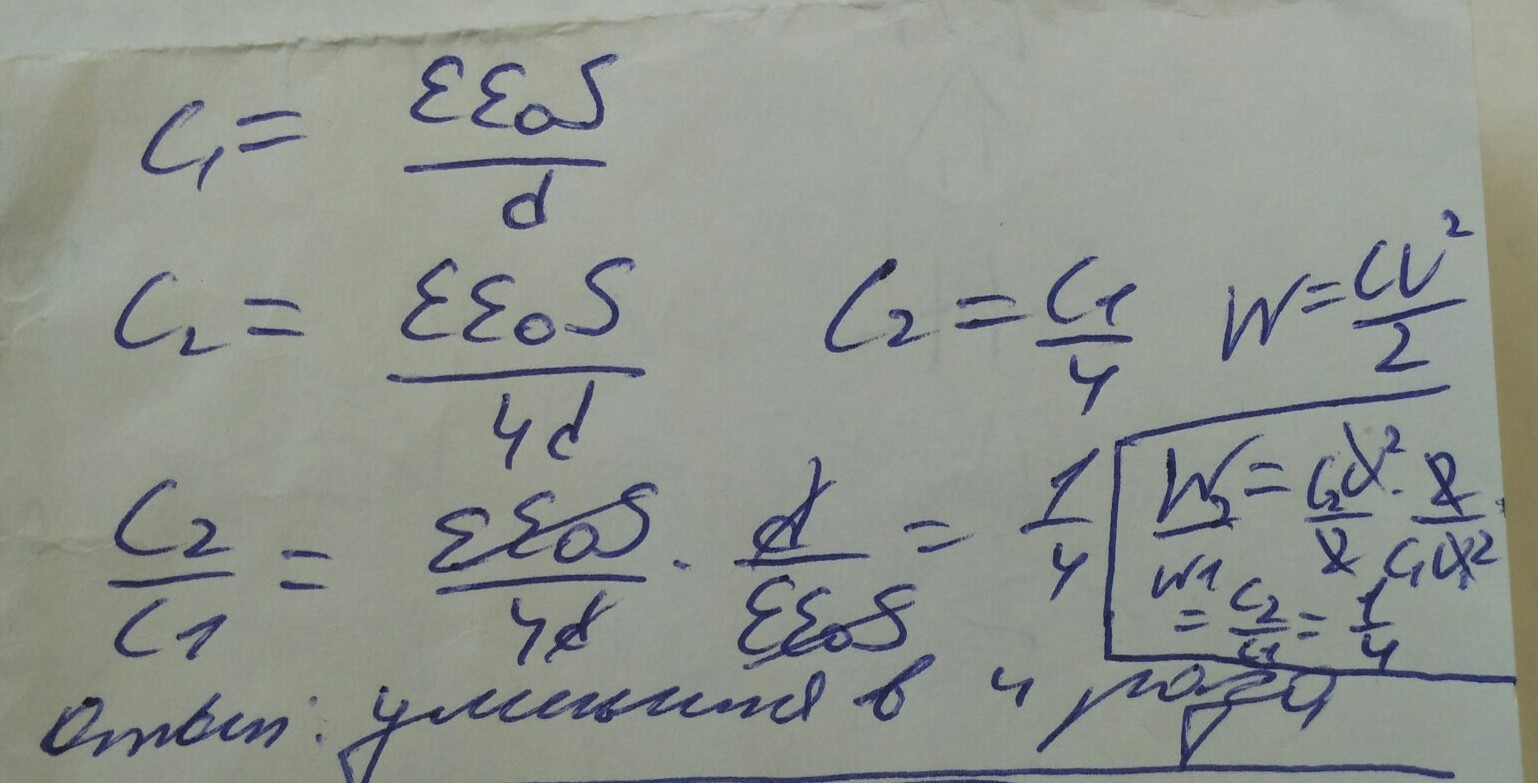 C₁ = εε₀S / d
C₂ = εε₀S / 4d
C₂ = C₁ / 4
W = CU² / 2
C₂ / C1 = εε₀S / 4d · d / εε₀S = 1 / 4
W₂ / W1 = C₂U² / 2 · 2 / C₁U² 
= C₂ / C₁ = 1 / 4
Ответ: уменьшится в 4 раза